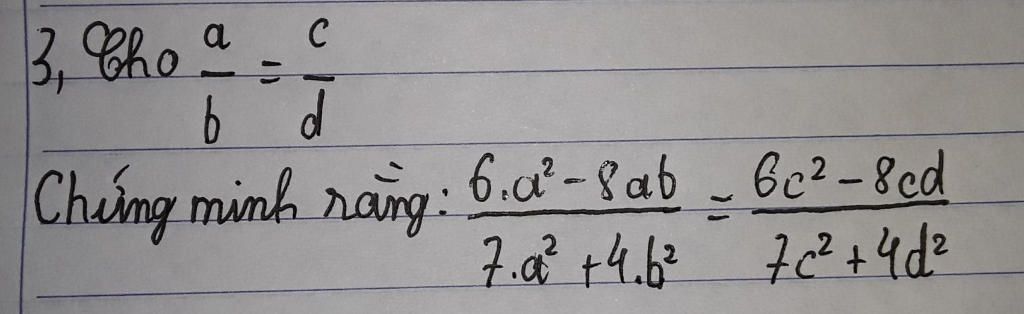 3, Cho a/b = c/d
Chứng minh rằng: (6.a² - 8ab)/(7.a² + 4.b²) = (6c² - 8cd)/(7c² + 4d²)